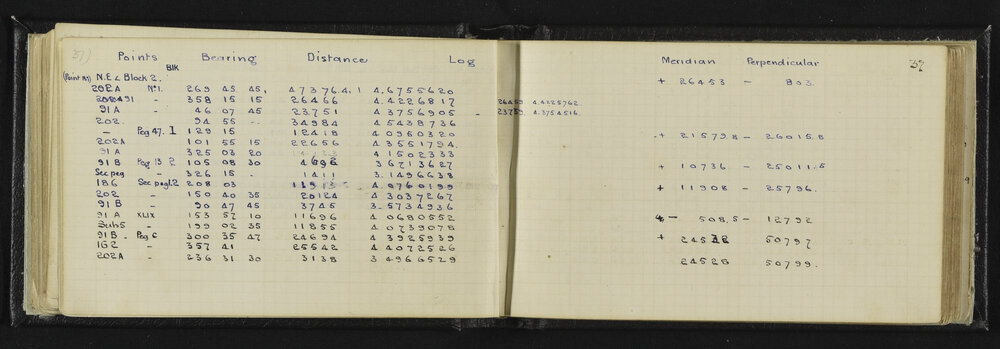 37)
Points Blk Bearing Distance Log Meridian Perpendicular 37
N.E ∠ Block 2. + 26453 - 803.
202A No1. 269 45 45. 47376.4. 4.6755620
91 - 358 15 15 26466 4.4226817 26459. 4.4225762
91A - 46 07 45 23751 4 3756905 - 23759. 4.3754516.
202. 94 55 - 34984 4 5438736
- Peg 47. I 129 15 12418 4 0940320 + 21579.8 - 26015.8
202A 101 55 15 22656 4 3551794.
91A 325 03 20 4 1502333
91B Peg 13 2 105 08 30 4696 3 6713627 + 10736 - 25011.5
Sec peg - 326 15 - 1411 3. 1496638
186 Sec peg 1.2 208 03 4.0760199 + 11908 - 25796.
202 - 150 40 35 20124 4 3037267
91B - 90 47 45 3745 3.5734936
91A XLIX 153 57 10 11696 4 0680552 - 508.5 - 12792
Sub5 - 199 02 35 11855 4 0739078
91B - Peg 6 300 35 47 24694 4 3925939 + 50797
162 - 357 41 25542 4 4072526
202A - 236 31 30 3138 3 4966529 24528 50799.